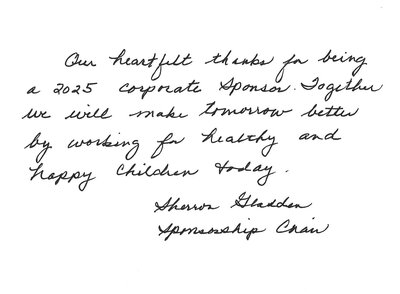 Our heartfelt thanks for being
a 2025 corporate Sponsor. Together
we will make tomorrow better
by working for healthy and
happy Children today.
Sherron Gladden
Sponsorship Chair